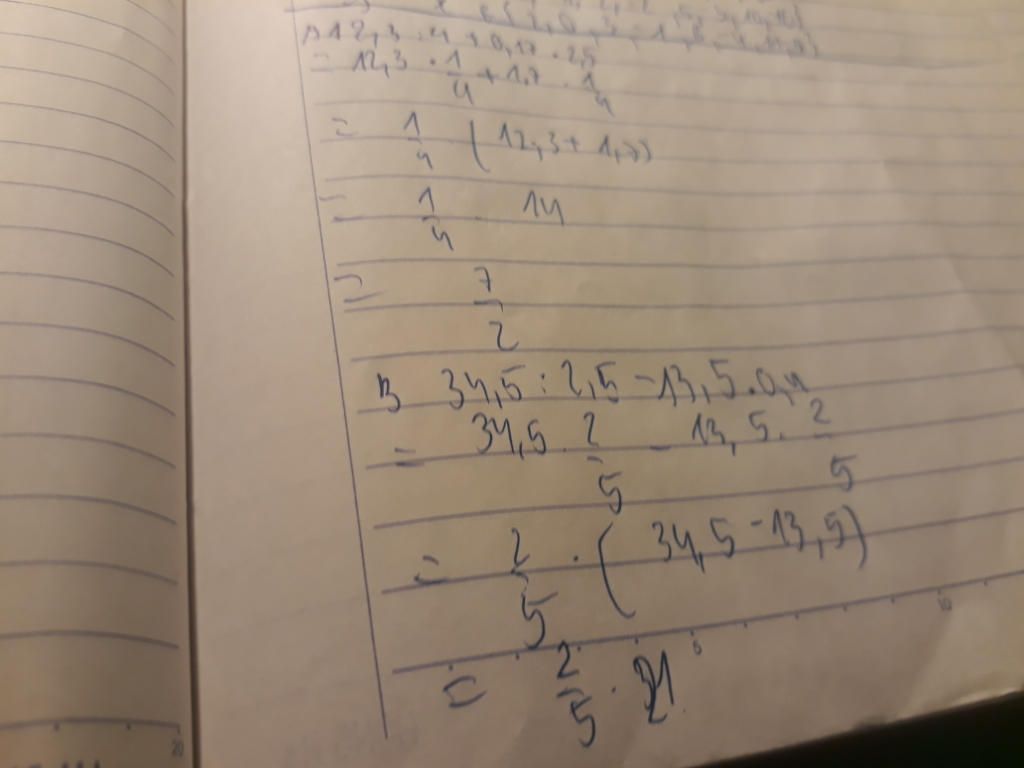 A 12,3 : 4 + 0,17 . 2,5
= 12,3 . 1/4 + 1,7 . 1/4
= 1/4 ( 12,3 + 1,7)
= 1/4 . 14
= 7/2
B 34,5 : 2,5 - 13,5 . 0,4
= 34,5 . 2/5 - 13,5 . 2/5
= 2/5 . ( 34,5 - 13,5)
= 2/5 . 21
10
5
20